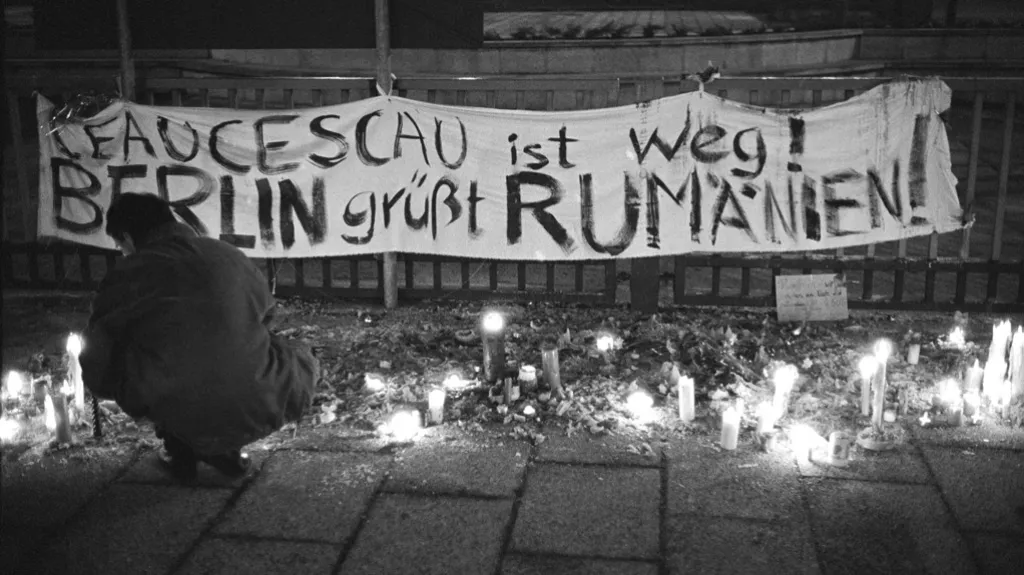 CEAUCESCAU ist weg!
BERLIN grüßt RUMÄNIEN!